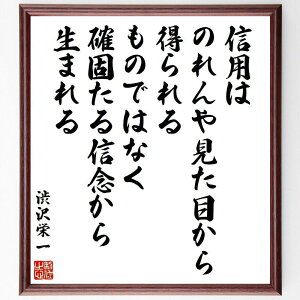 信用は
のれんや見た目から
得られる
ものではなく
確固たる信念から
生まれる
渋沢栄一